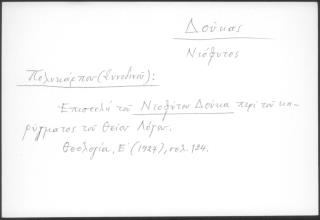 Δούκας
Νεόφυτος
Πολυκάρπου (Συνοδινοῦ):
Ἐπιστολὴ τοῦ Νεοφύτου Δούκα περὶ τοῦ κη-
ρύγματος τοῦ Θείου Λόγου.
Θεολογία, Ε΄ (1927), σελ. 124.